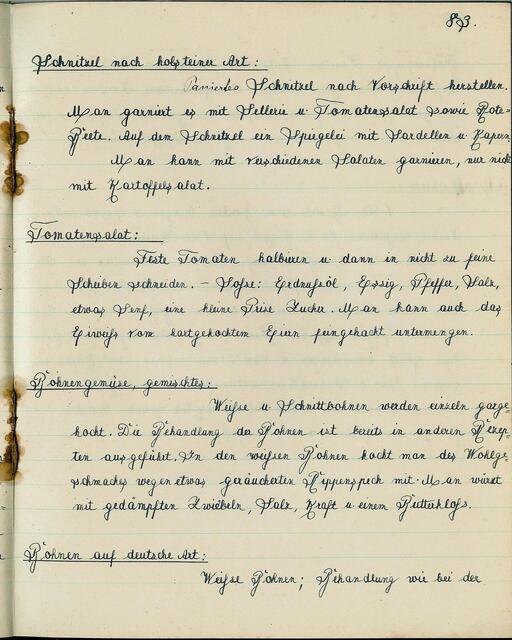 83.
Schnitzel nach holsteiner Art:
Paniertes Schnitzel nach Vorschrift herstellen.
Man garniert es mit Sellerie u. Tomatensalat sowie Rote-
Beete. Auf dem Schnitzel ein Spiegelei mit Sardellen u. Kapern.
Man kann mit verschiedenen Salaten garnieren, nur nicht
mit Kartoffelsalat.
Tomatensalat:
Feste Tomaten halbieren u. dann in nicht zu feine
Scheiben schneiden. – Soße: Erdnußöl, Essig, Pfeffer, Salz,
etwas Senf, eine kleine Prise Zucker. Man kann auch das
Eiweiß vom hartgekochtem Eiern feingehackt untermengen.
Bohnengemüse, gemischtes:
Weiße u. Schnittbohnen werden einzeln garge-
kocht. Die Behandlung der Bohnen ist bereits in anderen Rezep-
ten ausgeführt. In den weißen Bohnen kocht man des Wohlge-
schmackes wegen etwas geräucherten Rippenspeck mit. Man würzt
mit gedämpften Zwiebeln, Salz, Kraft u. einem Butterkloß.
Bohnen auf deutsche Art:
Weiße Bohnen; Behandlung wie bei der